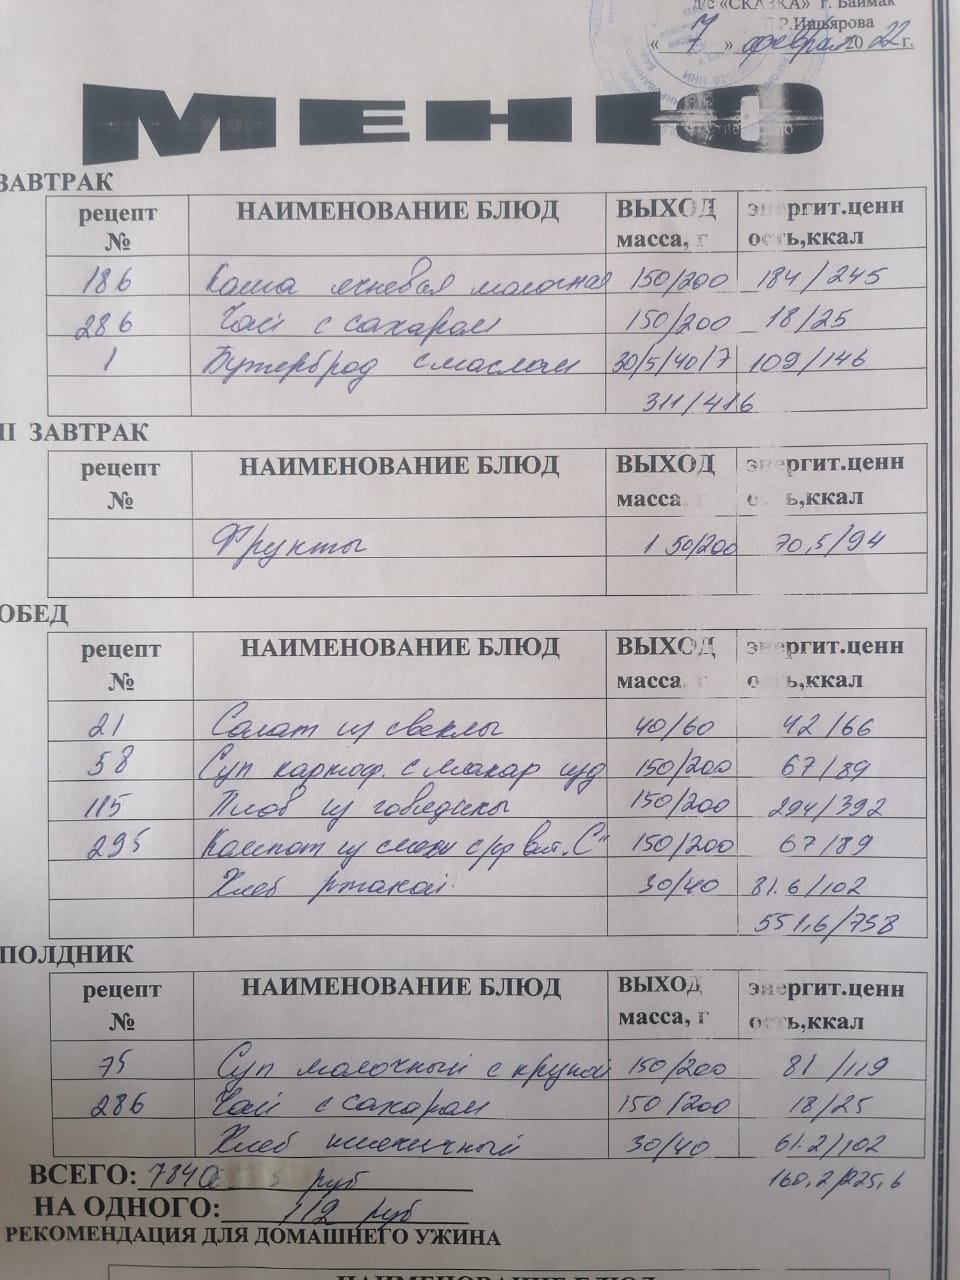 д/с «СКАЗКА» г. Баймак
Р.Ишьярова
« 7 » февраля 20 22 г.
МЕНЮ
ЗАВТРАК
рецепт № НАИМЕНОВАНИЕ БЛЮД ВЫХОД масса, г энергит.ценн ость,ккал
186 Каша ячневая молочная 150/200 184/245
286 Чай с сахаром 150/200 18/25
1 Бутерброд с маслом 30/5/40/7 109/146
311/416
II ЗАВТРАК
рецепт № НАИМЕНОВАНИЕ БЛЮД ВЫХОД масса, г энергит.ценн ость,ккал
Фрукты 150/200 70,5/94
ОБЕД
рецепт № НАИМЕНОВАНИЕ БЛЮД ВЫХОД масса, г энергит.ценн ость,ккал
21 Салат из свеклы 40/60 42/66
58 Суп картоф. с макар изд 150/200 67/89
115 Плов из говядины 150/200 294/392
295 Компот из смеси с/ф вит. "С" 150/200 67/89
Хлеб ржаной 30/40 81.6/102
551,6/738
ПОЛДНИК
рецепт № НАИМЕНОВАНИЕ БЛЮД ВЫХОД масса, г энергит.ценн ость,ккал
75 Суп молочный с крупой 150/200 81/119
286 Чай с сахаром 150/200 18/25
Хлеб пшеничный 30/40 61.2/102
ВСЕГО: 7840 руб 160,2/225,6
НА ОДНОГО: 112 руб
РЕКОМЕНДАЦИЯ ДЛЯ ДОМАШНЕГО УЖИНА
НАИМЕНОВАНИЕ БЛЮД